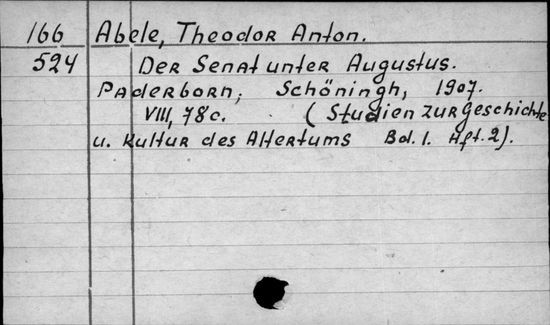 166 Abele, Theodor Anton.
524 Der Senat unter Augustus.
Paderborn; Schöningh, 1907.
VIII, 78 c. (Studien zur Geschichte
u. Kultur des Altertums Bd. 1. Hft. 2).